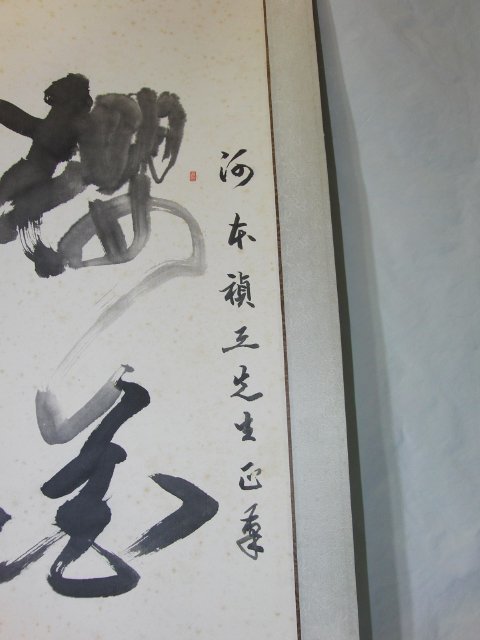 河本禎三先生正筆
櫻花